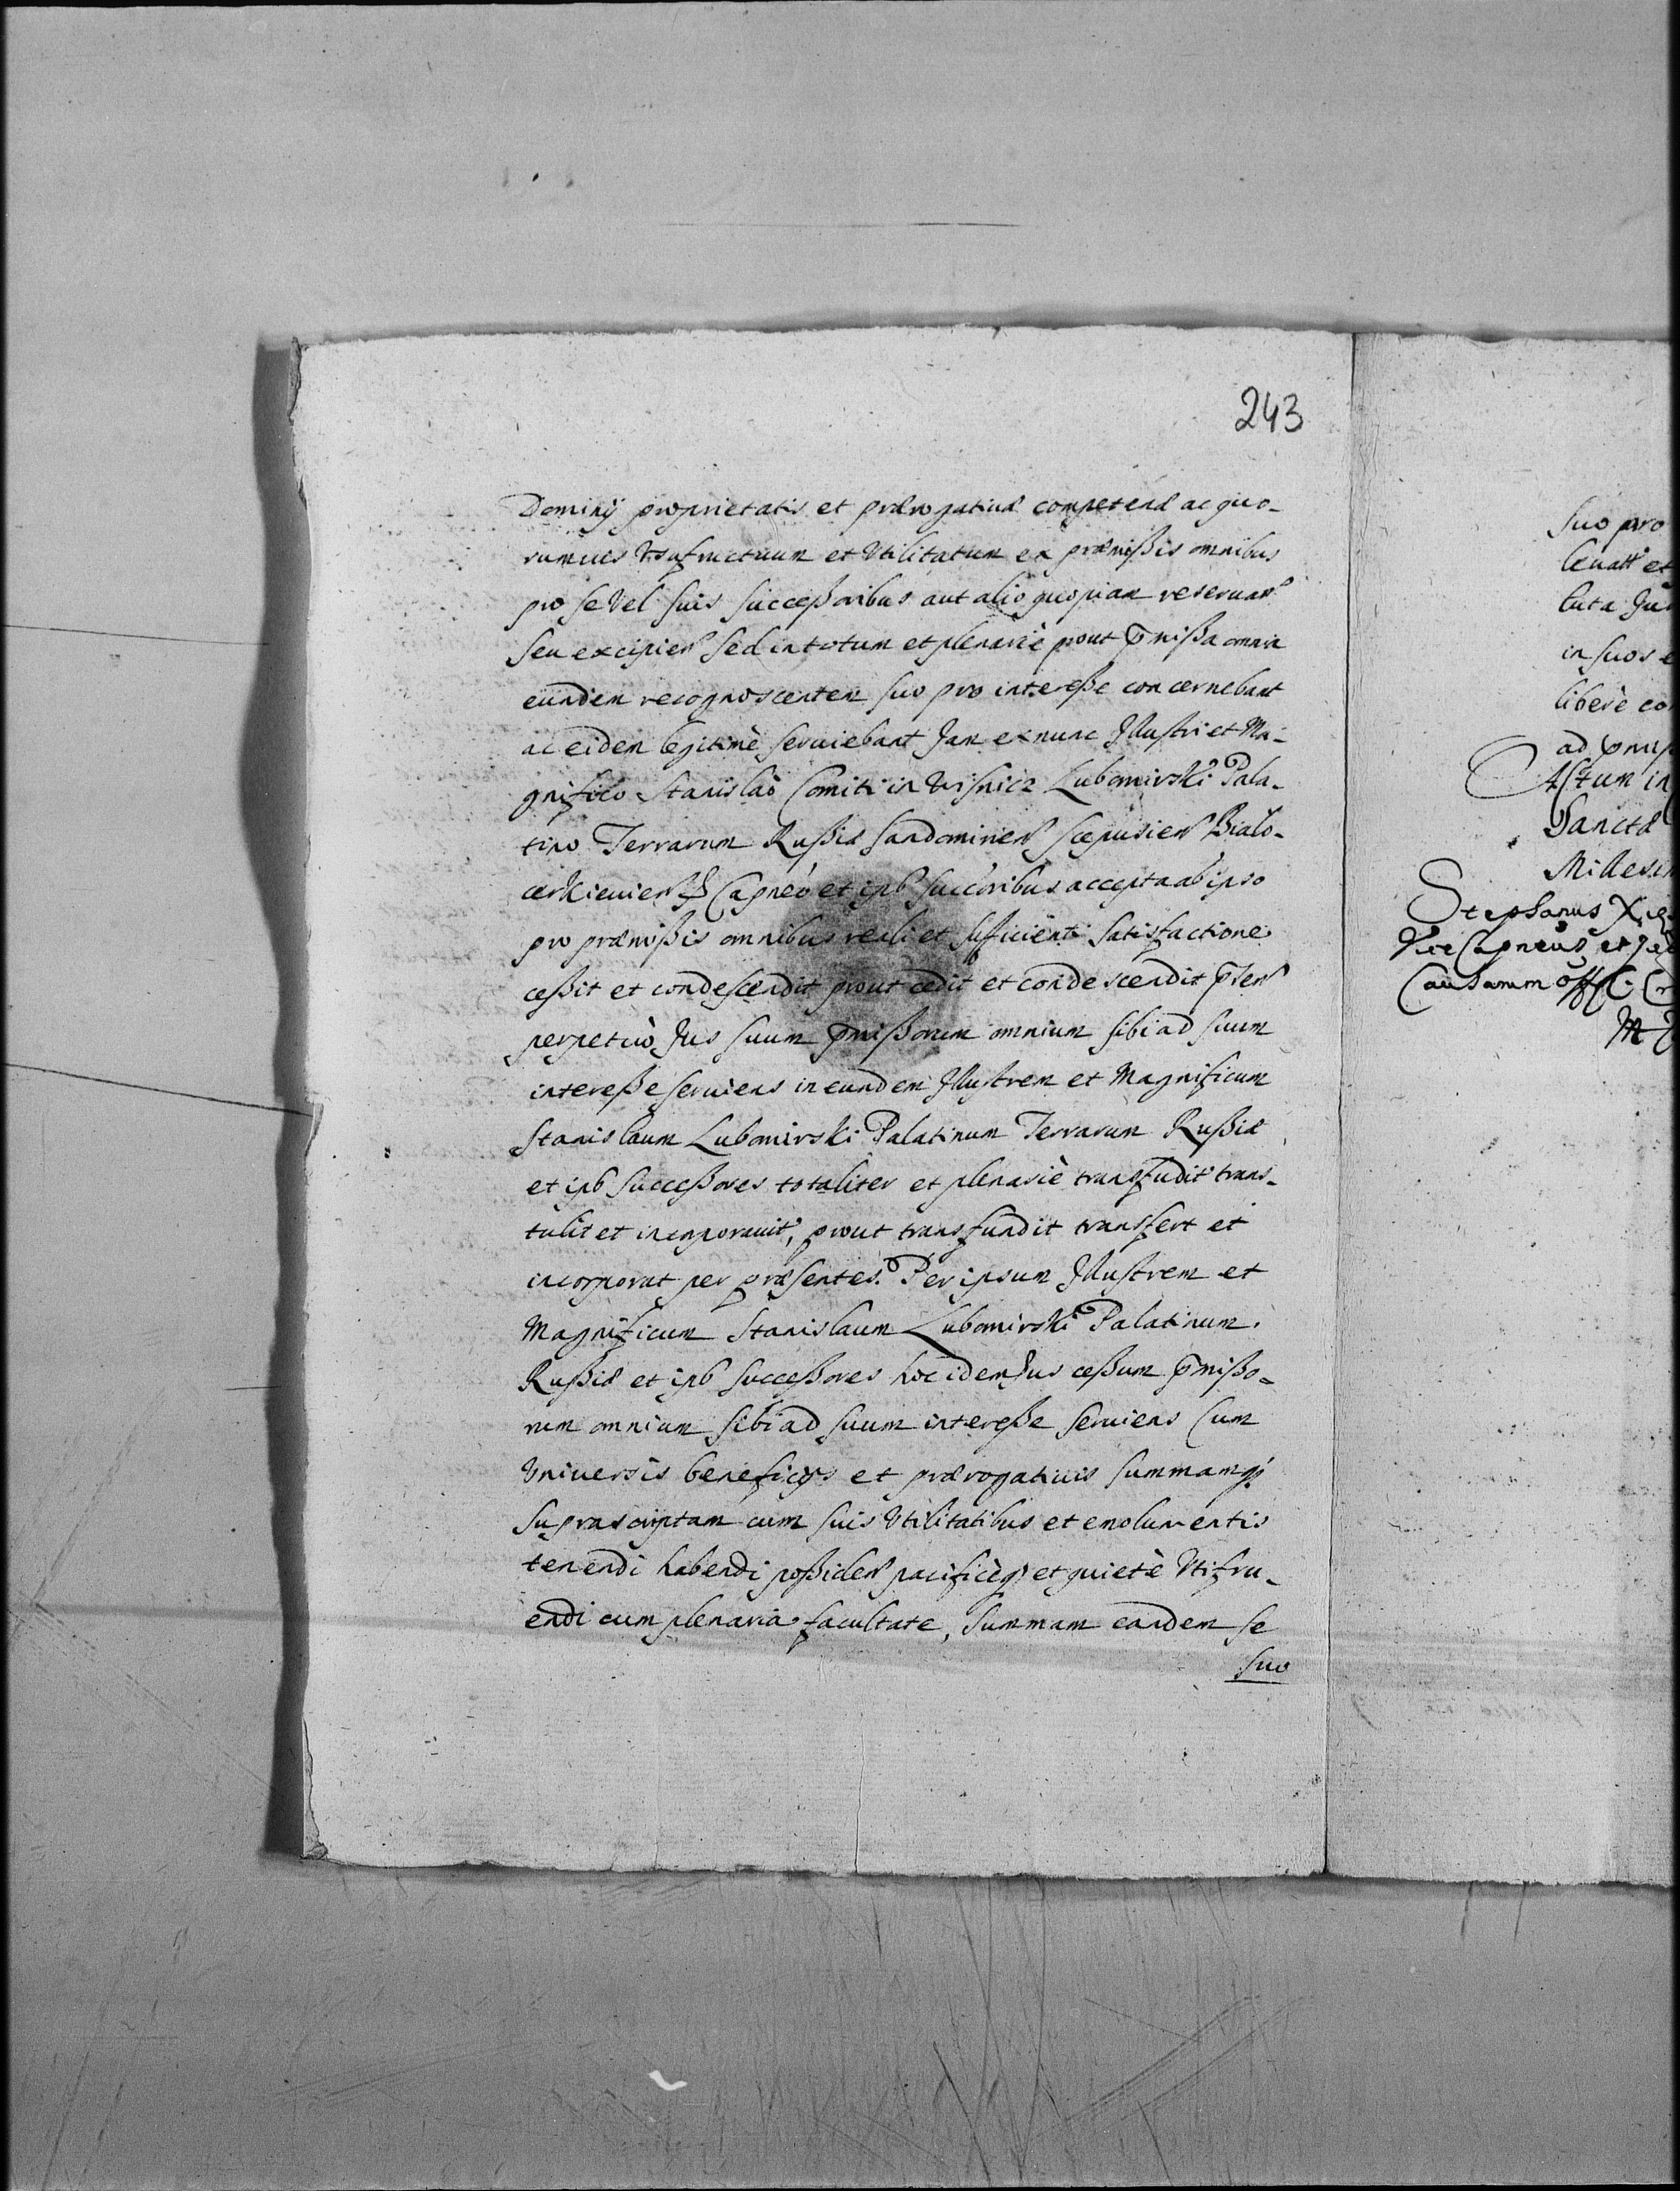 243
Dominÿ proprietatis et prærogatiuæ competenæ ac quo-
rumues Vsufructuum et Vtilitatum ex præmißis omnibus
pro se Vel suis succeßoribus aut alio quopiam reseruan
seu excipien sed in totum et plenariè prout pmißa omnia
eundem recognoscentem suo pro intereße concernebant
ac eidem legitimè seruiebant Jam ex nunc Jllustri et Ma-
gnifico Stanislaò Comiti in Wisnicz Lubomirski Pala-
tino Terrarum Rußiæ Sandomirien Scepusien Bialo-
cerkieuien Capneo et ips succoribus accepta ab ipso
pro præmißis omnibus reali et sufficienti satisfactione
ceßit et condescendit prout cedit et condescendit pten
perpetuò Jus suum pmißorum omnium sibi ad suum
intereße seruiens in eundem Jllustrem et Magnificum
Stanislaum Lubomirski Palatinum Terrarum Rußiæ
et ips succeßores totaliter et plenariè transfudit trans-
tulit et incorporauit, prout transfundit transfert et
incorporat per præsentes. Per ipsum Jllustrem et
Magnificum Stanislaum Lubomirski Palatinum
Rußiæ et ips succeßores hoc idem Jus ceßum pmißo-
rum omnium sibi ad suum intereße seruiens Cum
Vniuersis beneficÿs et prærogatiuis summamq
suprascriptam cum suis Vtilitatibus et emolumentis
tenendi habendi poßiden pacificèq et quietè Vtifru-
endi cum plenaria facultate, summam eandem se
suo
suo pro
leuatt et
luta Ju
in suos e
liberè co
ad pmiß
Actum in
Sanctæ
Millesim
Stephanus
Vice Capneus et
Causarum Offi
M